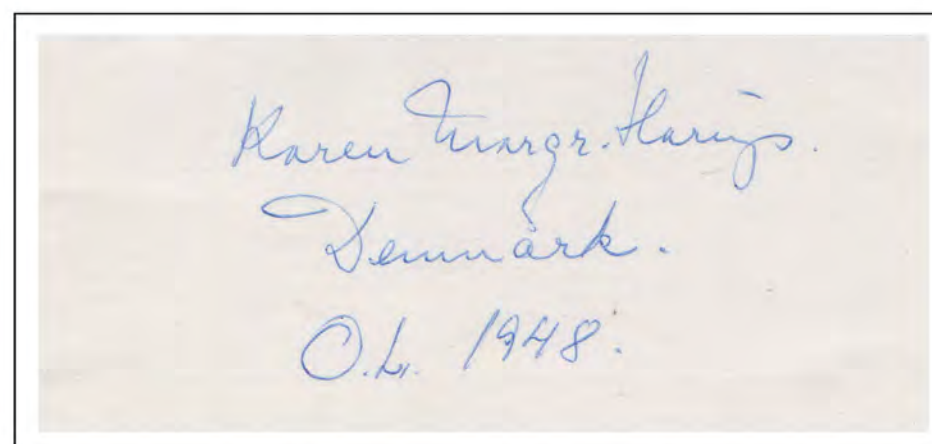 Karen Margr. Harup.
Denmark.
O.L. 1948.